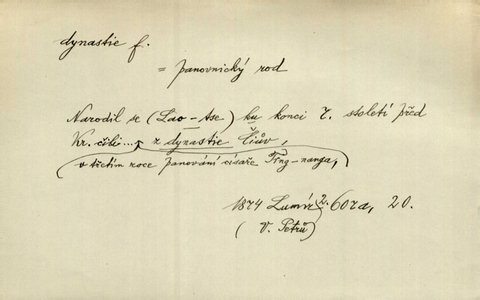 dynastie f.
= panovnický rod
Narodil se (Lao-tse) ku konci 7. století před
Kr. čili ... z dynastie Čiův,
v třetím roce panování císaře Ting-nanga,
1874 Lumír 2. 60za, 20.
(V. Petrů)